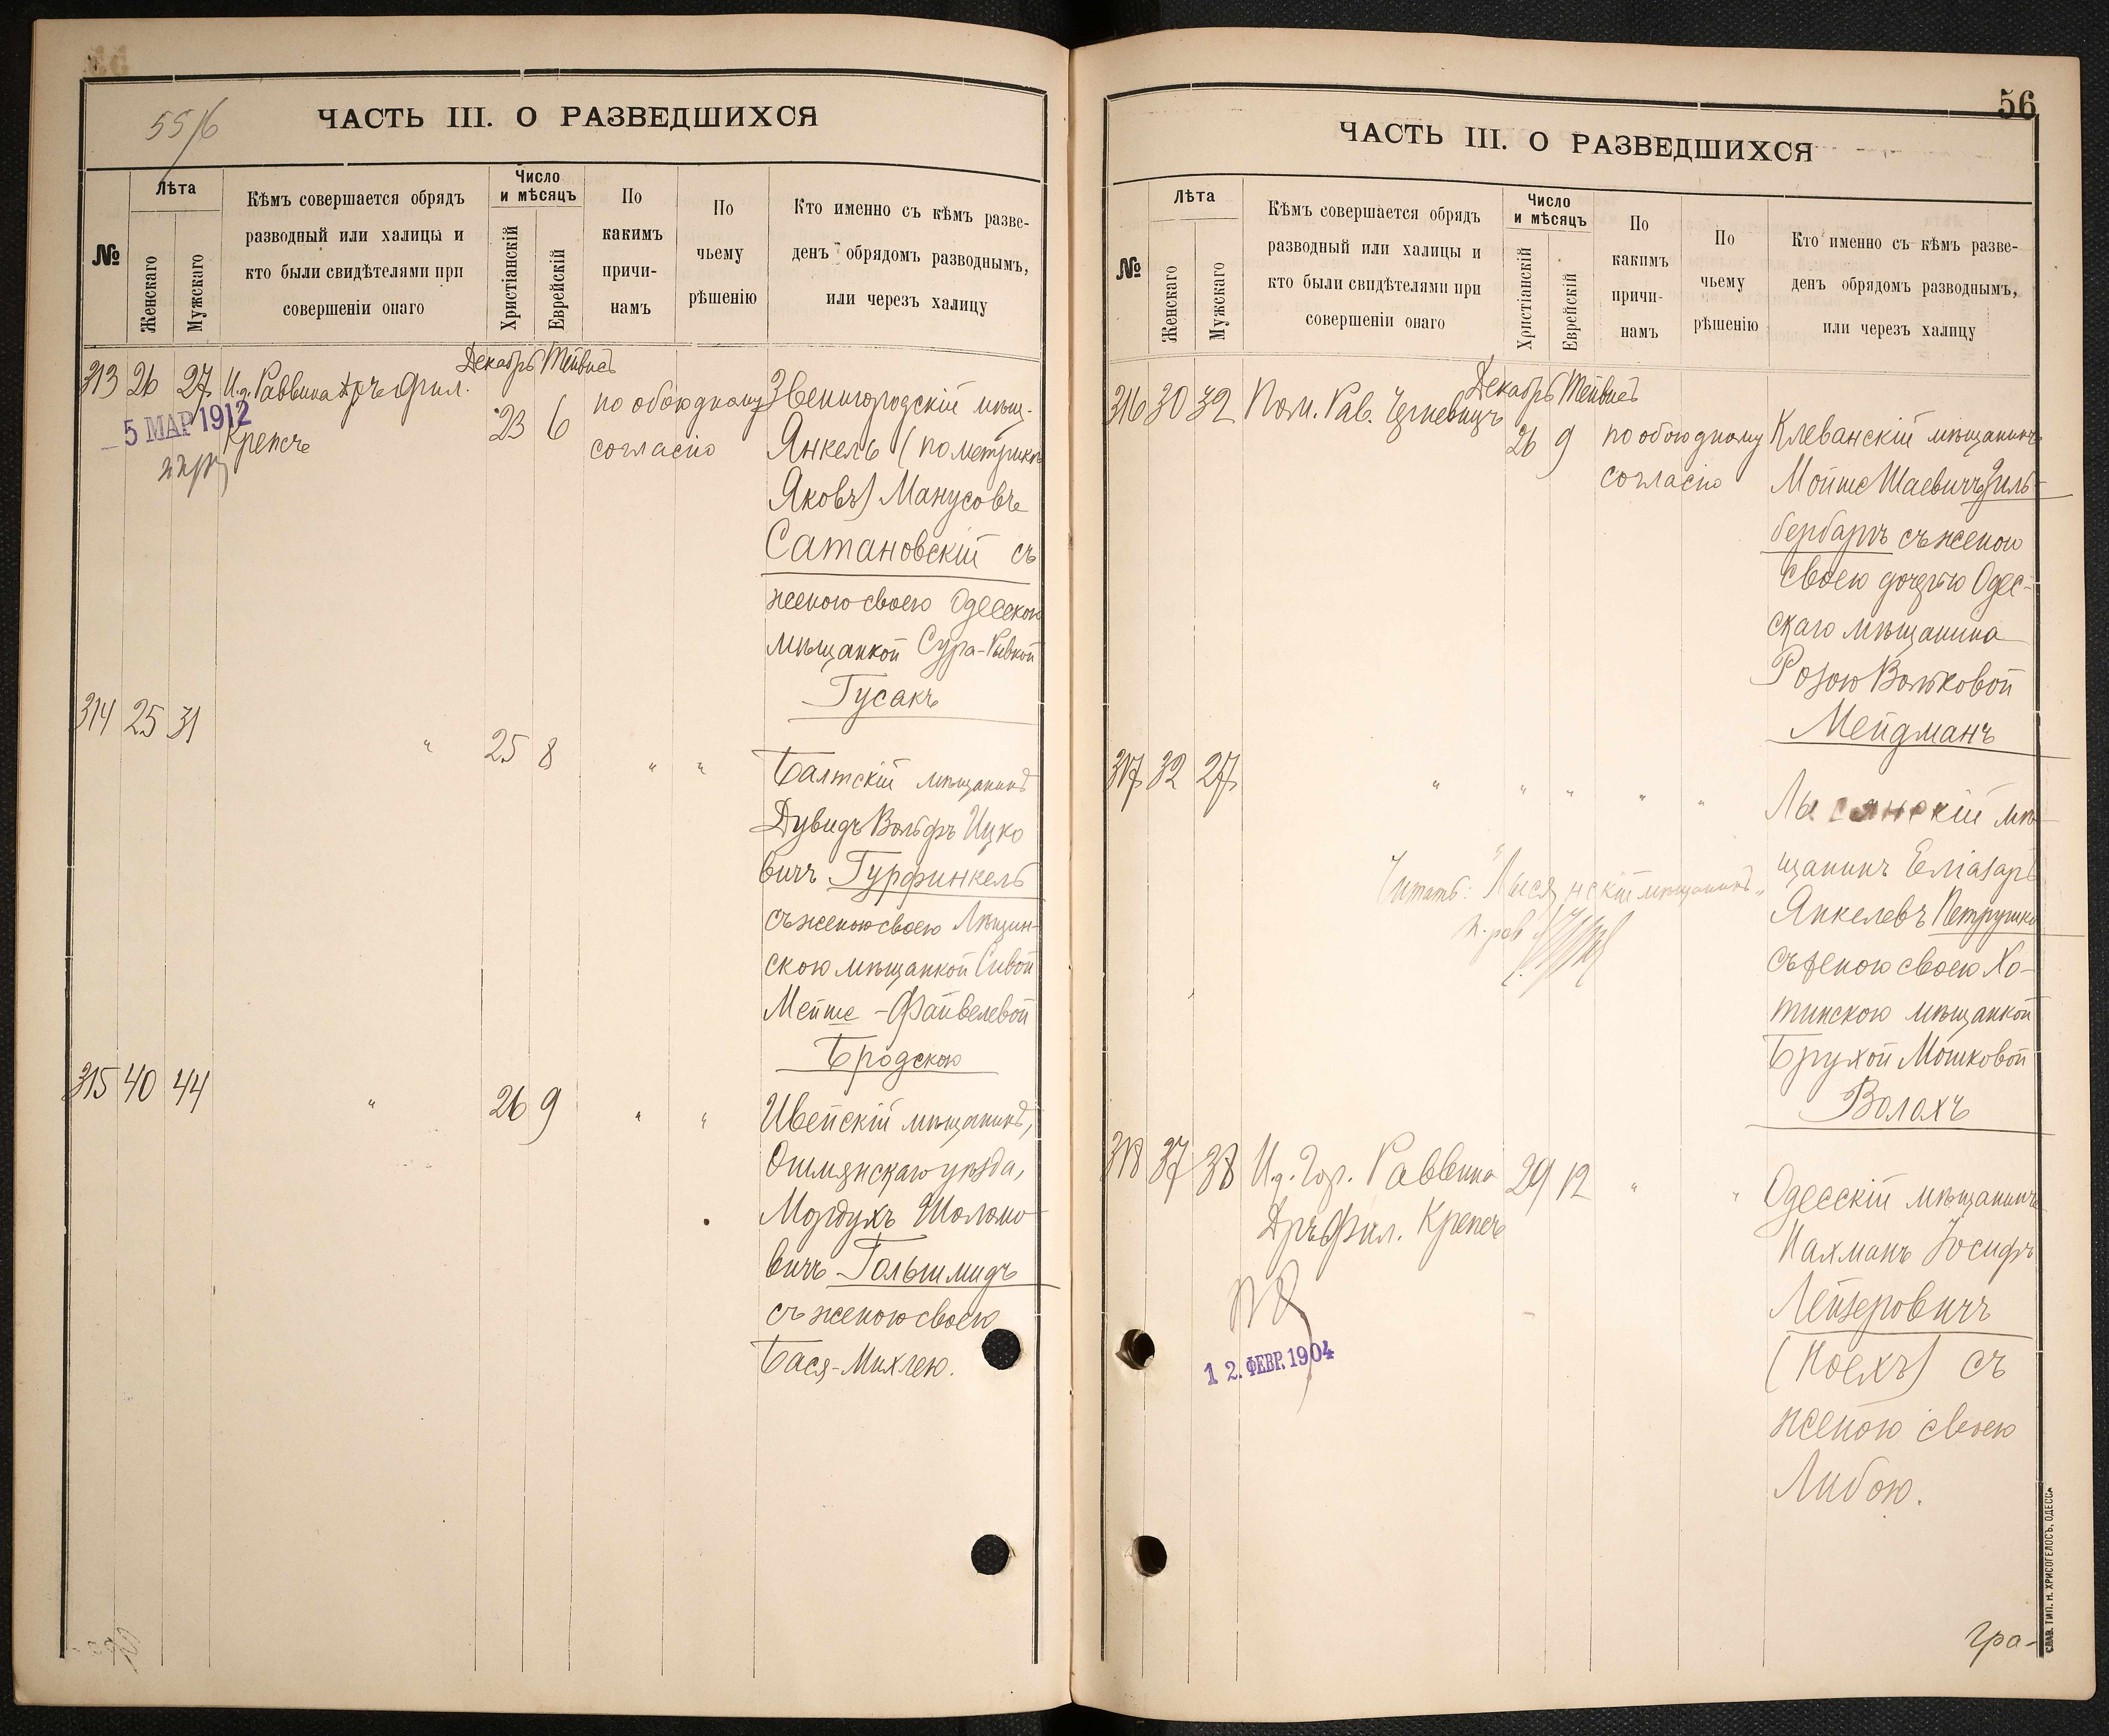 55/6
ЧАСТЬ III. О РАЗВЕДШИХСЯ
№
Лѣта
Женскаго
Мужскаго
Кѣмъ совершается обрядъ
разводный или халицы и
кто были свидѣтелями при
совершеніи онаго
Число
и мѣсяцъ
Христіанскій
Еврейскій
По
какимъ
причи-
намъ
По
чьему
рѣшенію
Кто именно съ кѣмъ разве-
денъ обрядомъ разводнымъ,
или черезъ халицу
Декабрь Тейвисъ
313 26 27 И.д. Раввина Д-ръ Фил.
Крепсъ
5 МАР 1912
23 6
по обоюдному
согласію
Звенигородскій мѣщ.
Янкель (по метрикѣ
Яковъ) Манусовъ
Сатановскій съ
женою своею Одесскою
мѣщанкой Сура-Ривкой
Гусакъ
314 25 31 " 25 8 " "
Балтскій мѣщанинъ
Дувидъ Вольфъ Ицко
вичъ Гурфинкель
съ женою своею
скою мѣщанкой Сивой
Мейше-Файвелевой
Бродскою
315 40 44 " 26 9 " "
Ивейскій мѣщанинъ,
Ошмянскаго уѣзда,
Мордухъ Шоломо
вичъ Гольшмидъ
съ женою своею
Бася-Михлею.
56
ЧАСТЬ III. О РАЗВЕДШИХСЯ
№
Лѣта
Женскаго
Мужскаго
Кѣмъ совершается обрядъ
разводный или халицы и
кто были свидѣтелями при
совершеніи онаго
Число
и мѣсяцъ
Христіанскій
Еврейскій
По
какимъ
причи-
намъ
По
чьему
рѣшенію
Кто именно съ кѣмъ разве-
денъ обрядомъ разводнымъ,
или черезъ халицу
Декабрь Тейвисъ
316 30 32 Пом. Рав. Черневицъ
26 9
по обоюдному
согласію
Клеванскій мѣщанинъ
Мойше Шаевичъ Зиль-
бербартъ съ женою
своею дочерью Одес-
скаго мѣщанина
Розою Волковой
Мейдманъ
317 32 27 " " " " "
Лысянскій мѣ-
щанинъ Еліазаръ
Янкелевъ Петрушка
съ женою своею Хо-
тинскою мѣщанкой
Брухой Мошковой
Волохъ
Читать: "Лысянскій мѣщанинъ"
318 37 38 И.д. Гор. Раввина
Д-ръ Фил. Крепсъ
29 12 " "
12. ФЕВР. 1904
Одесскій мѣщанинъ
Нахманъ Іосифъ
Лейзеровичъ
(Ноехъ) съ
женою своею
Либою.
Гра-
СЛАВ. ТИП. Н. ХРИСОГЕЛОСЪ, ОДЕССА